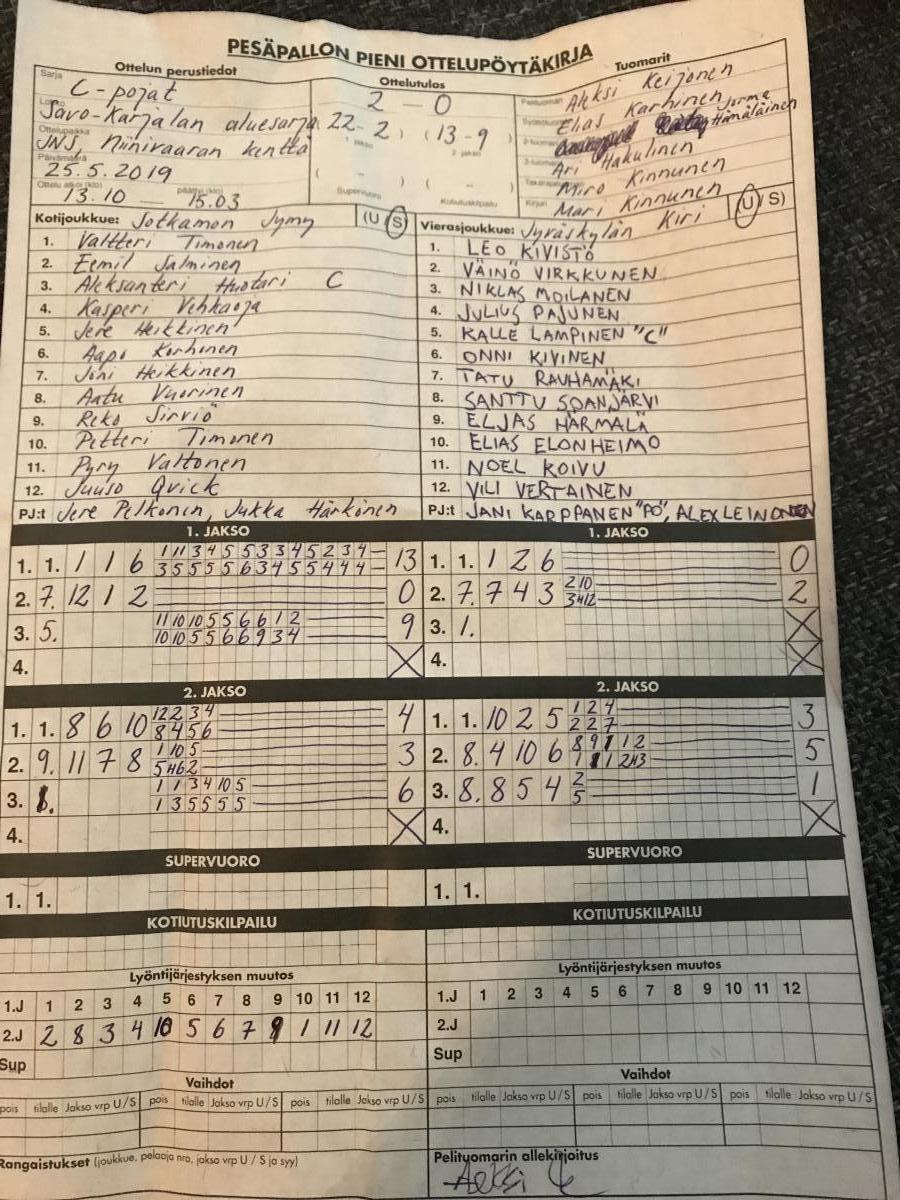 PESÄPALLON PIENI OTTELUPÖYTÄKIRJA
Ottelun perustiedot
Ottelutulos
Tuomarit
Sarja C-pojat
Savo-Karjalan aluesarja
Ottelupaikka JNS, Niinivaaran kenttä
Päivämäärä 25.5.2019
Ottelu alkoi (klo) 13.10 — päättyi (klo) 15.03
2 – 0
( 22-2 ) ( 13-9 )
( - ) ( - )
Supervuoro Kotiutuskilpailu
Aleksi Keijonen
Elias Karhinen
Jorma Hämäläinen
Ari Hakulinen
Miro Kinnunen
Kirjuri Mari Kinnunen
Kotijoukkue: Sotkamon Jymy (U / S)
1. Valtteri Timonen
2. Eemil Salminen
3. Aleksanteri Huotari C
4. Kasperi Vehkaoja
5. Jere Heikkinen
6. Aapo Korhonen
7. Joni Heikkinen
8. Aatu Vuorinen
9. Reko Sirviö
10. Petteri Timonen
11. Pyry Valtonen
12. Juuso Qvick
PJ:t Jere Pelkonen, Jukka Härkönen
Vierasjoukkue: Jyväskylän Kiri (U / S)
1. LEO KIVISTÖ
2. VÄINÖ VIRKKUNEN
3. NIKLAS MOILANEN
4. JULIUS PAJUNEN
5. KALLE LAMPINEN "C"
6. ONNI KIVINEN
7. TATU RAUHAMÄKI
8. SANTTU SOANJÄRVI
9. ELJAS HÄRMÄLÄ
10. ELIAS ELONHEIMO
11. NOEL KOIVU
12. VILI VERTAINEN
PJ:t JANI KARPPANEN "PÖ", ALEX LEINONEN
1. JAKSO
1. 1. 1 1 6 1 11 3 4 5 5 3 3 4 5 2 3 4 13
3 5 5 5 5 6 3 4 5 5 4 4 4
2. 7. 12 1 2 0
3. 5. 11 10 10 5 5 6 6 1 2 9
10 10 5 5 6 6 9 3 4
4. X
1. JAKSO
1. 1. 1 2 6 0
2. 7. 7 4 3 2 10 2
3 12
3. 1. X
4. X
2. JAKSO
1. 1. 8 6 10 12 2 3 4 4
8 4 5 6
2. 9. 11 7 8 1 10 5 3
3. 1 1 3 4 10 5 6
1 3 5 5 5 5
4. X
2. JAKSO
1. 1. 10 2 5 1 2 4 3
2 2 7
2. 8. 4 10 6 8 9 1 1 2 5
3. 8. 8 5 4 2 1
5
4. X
SUPERVUORO
1. 1.
SUPERVUORO
1. 1.
KOTIUTUSKILPAILU
KOTIUTUSKILPAILU
Lyöntijärjestyksen muutos
1.J 1 2 3 4 5 6 7 8 9 10 11 12
2.J 2 8 3 4 10 5 6 7 9 1 11 12
Sup
Lyöntijärjestyksen muutos
1.J 1 2 3 4 5 6 7 8 9 10 11 12
2.J
Sup
Vaihdot
pois tilalle Jakso vrp U / S pois tilalle Jakso vrp U / S pois tilalle Jakso vrp U / S
Vaihdot
pois tilalle Jakso vrp U / S pois tilalle Jakso vrp U / S pois tilalle Jakso vrp U / S
Rangaistukset (joukkue, pelaaja nro, jakso vrp U / S ja syy)
Pelituomarin allekirjoitus
Aleksi